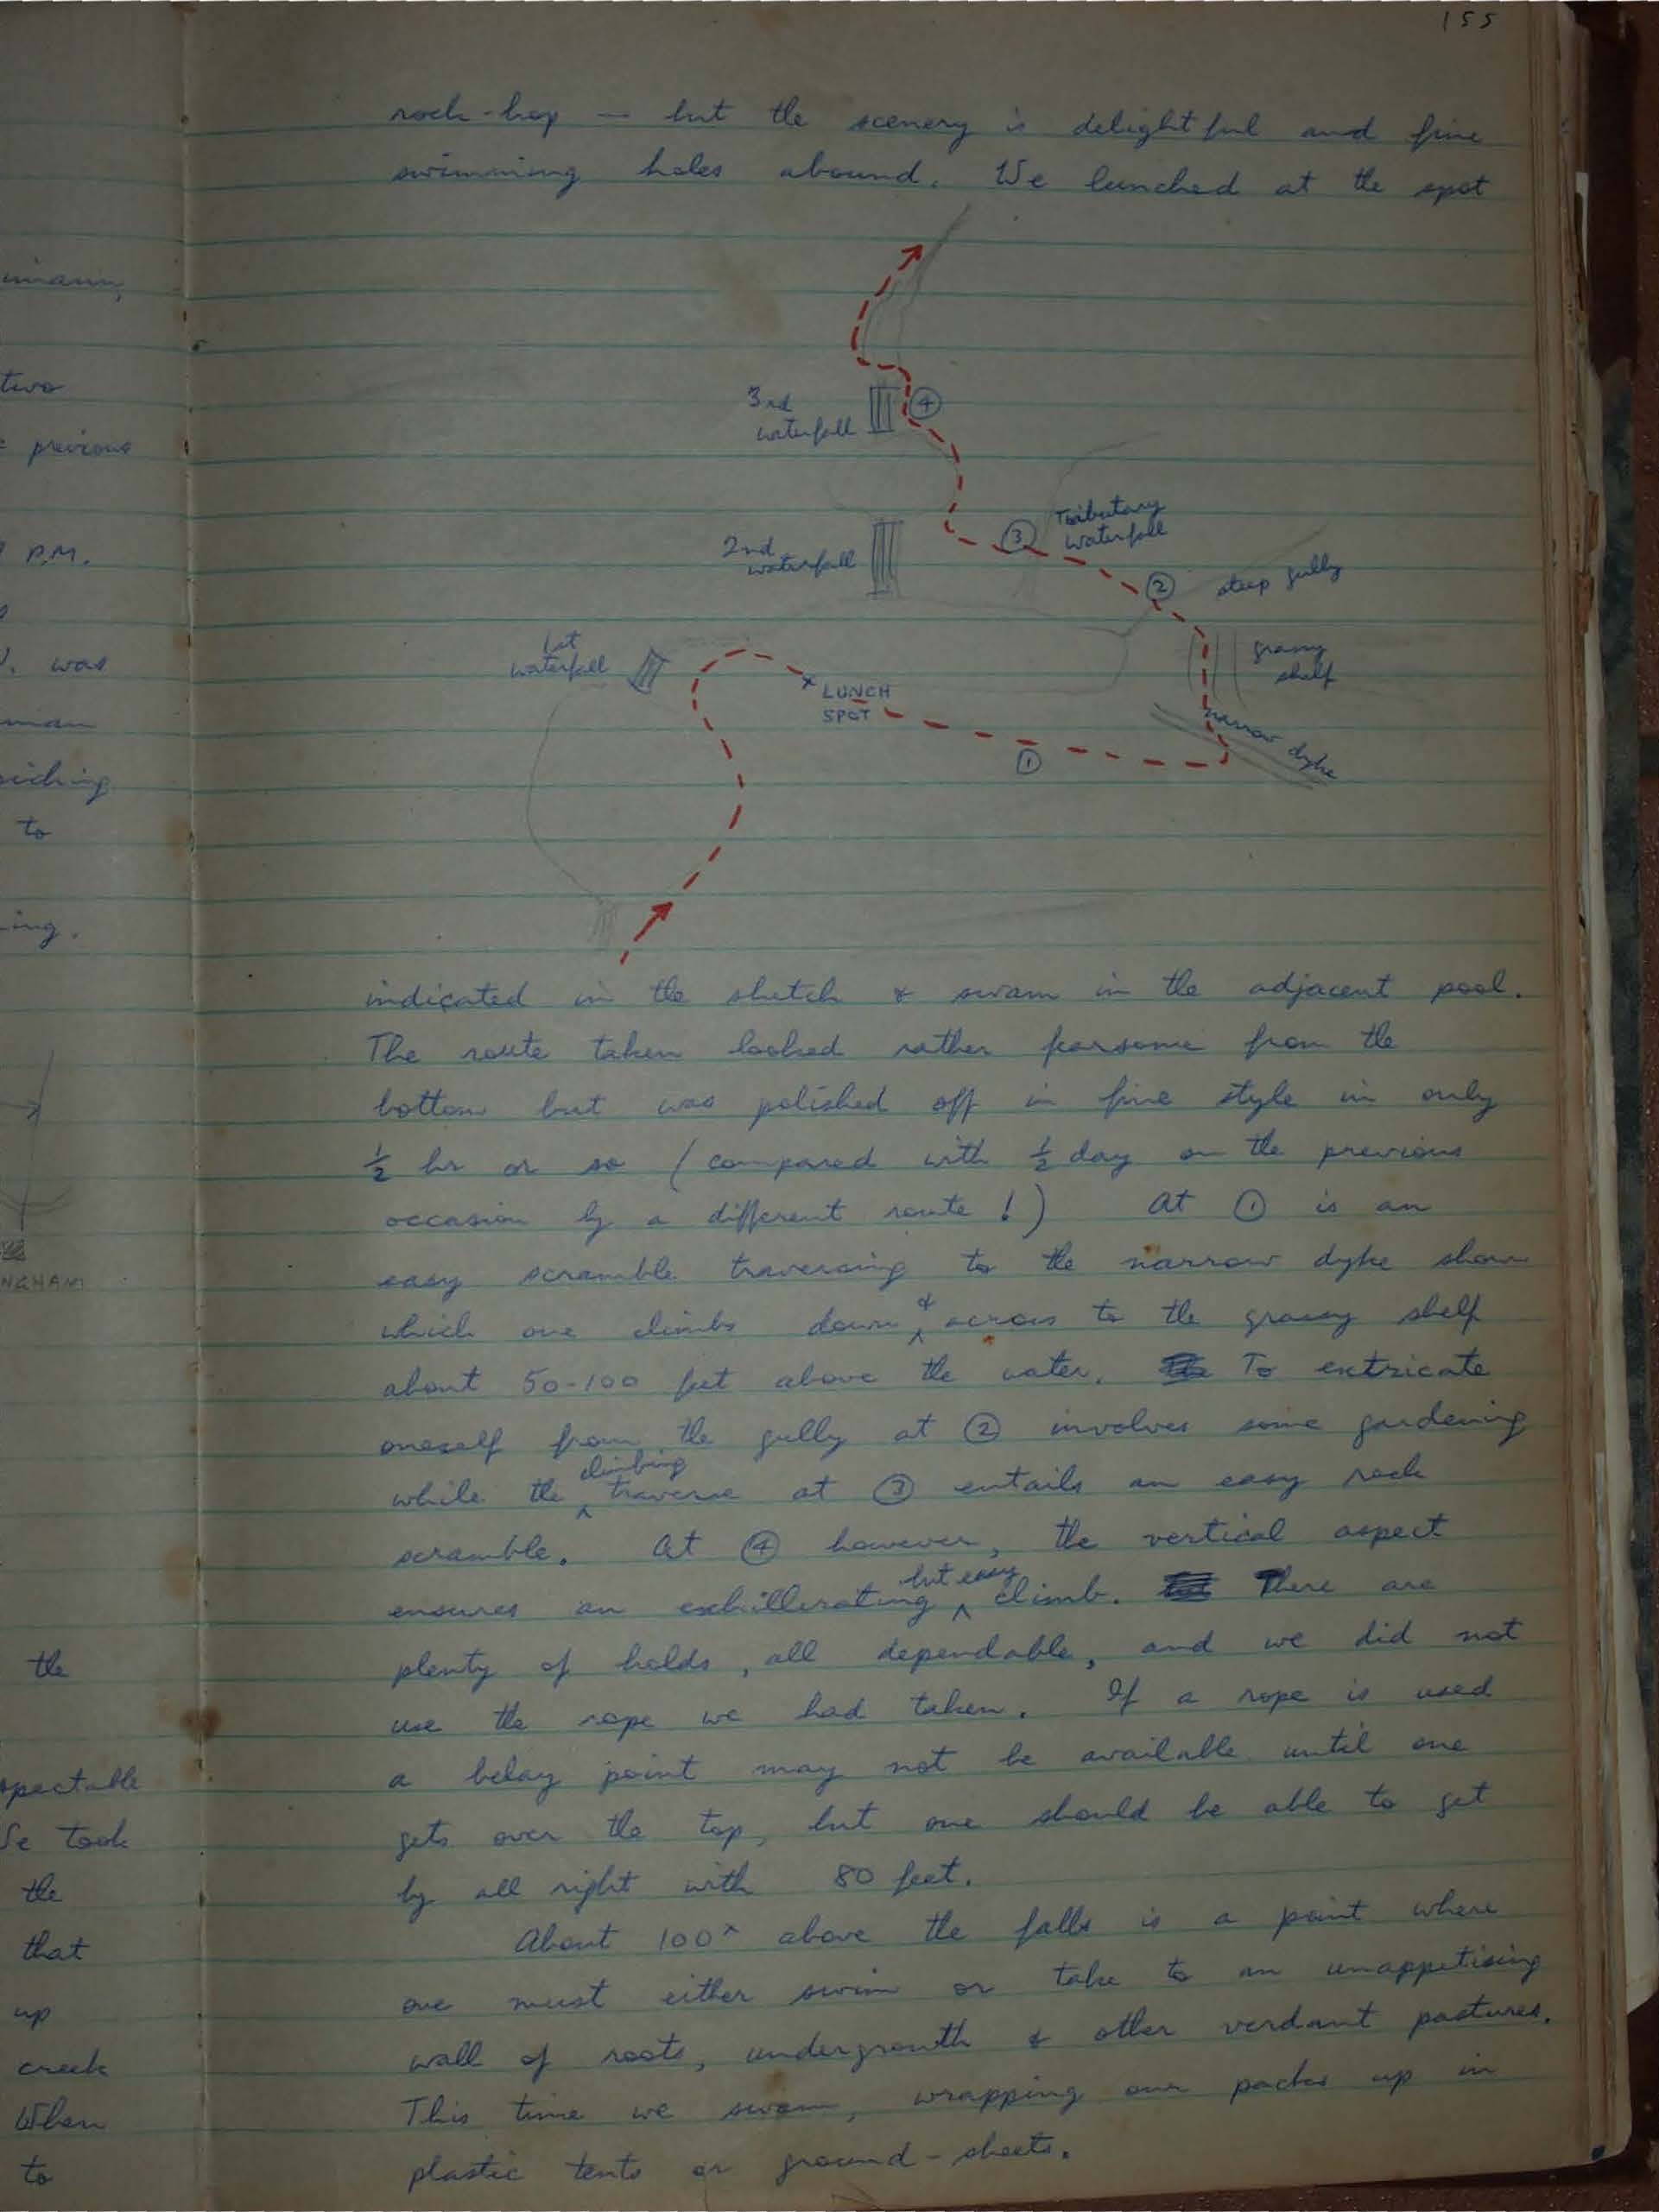 155
rock-hop — but the scenery is delightful and fine
swimming holes abound. We lunched at the spot
3rd
waterfall
4
Tributary
waterfall
3
2nd
waterfall
2
steep gully
1st
waterfall
grassy
shelf
LUNCH
SPOT
narrow dyke
1
indicated in the sketch & swam in the adjacent pool.
The route taken looked rather fearsome from the
bottom but was polished off in fine style in only
½ hr or so (compared with ½ day on the previous
occasion by a different route!) At ① is an
easy scramble traversing to the narrow dyke shown
which one climbs down & across to the grassy shelf
about 50-100 feet above the water. To extricate
oneself from the gully at ② involves some gardening
while the climbing traverse at ③ entails an easy rock
scramble. At ④ however, the vertical aspect
ensures an exhillerating but easy climb. There are
plenty of holds, all dependable, and we did not
use the rope we had taken. If a rope is used
a belay point may not be available until one
gets over the top, but one should be able to get
by all right with 80 feet.
About 100ˣ above the falls is a point where
one must either swim or take to an unappetising
wall of roots, undergrowth & other verdant pastures.
This time we swam, wrapping our packs up in
plastic tents or ground-sheets.
two
previous
P.M.
was
man
to
ing.
NGHAM
the
pectable
took
the
that
up
creek
When
to